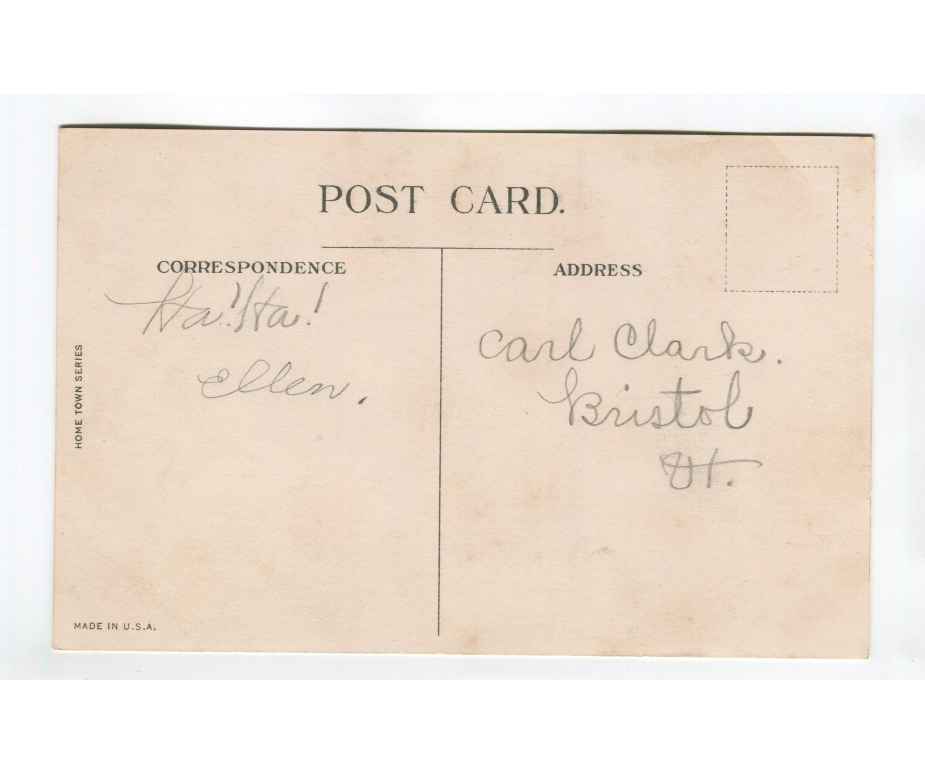 POST CARD.
CORRESPONDENCE
Ha! Ha!
Ellen.
ADDRESS
Carl Clark.
Bristol
Vt.
HOME TOWN SERIES
MADE IN U.S.A.